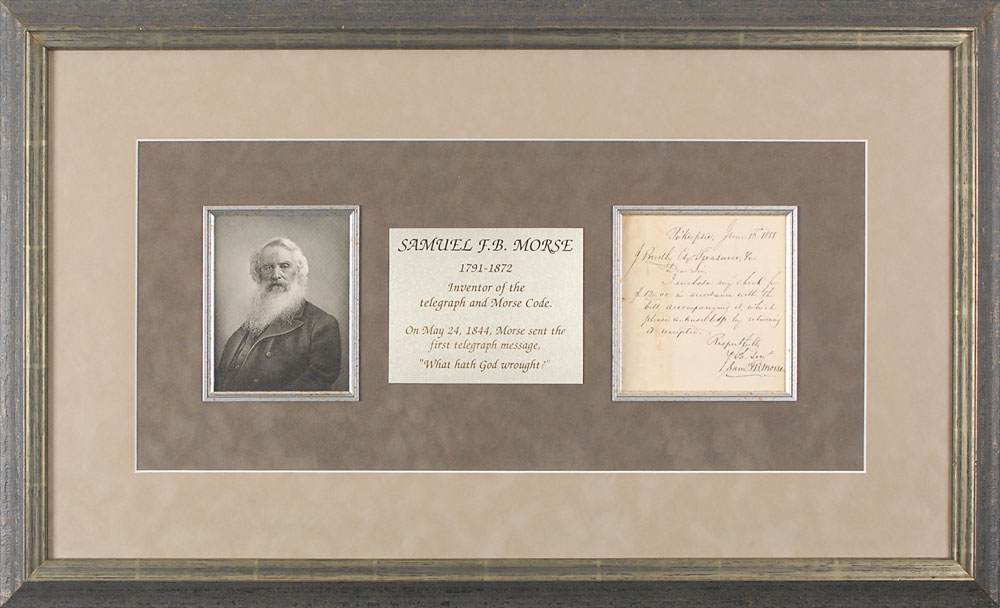 SAMUEL F.B. MORSE
1791-1872
Inventor of the
telegraph and Morse Code.
On May 24, 1844, Morse sent the
first telegraph message,
"What hath God wrought?"
Po'keepsie, June
Treasurer, &c.
Dear Sir,
I enclose my check for
in accordance with the
bill accompanying it, which
please acknowledge by returning
it receipted.
Respectfully
Yr. Ob. Servt.
Saml. F. B. Morse